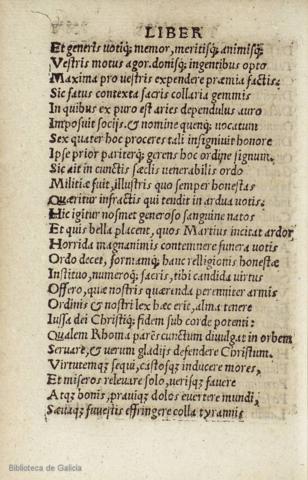 LIBER
Et generis uotiq́; memor, meritisq́; animisq́;
Vestris motus agor. donisq́; ingentibus opto
Maxima pro uestris expendere præmia factis.
Sic fatus contexta sacris collaria gemmis
In quibus ex puro est aries dependulus auro
Imposuit socijs. & nomine quenq́; uocatum
Sex quater hoc proceres tali insigniuit honore
Ipse prior pariterq́; gerens hoc ordine signum.
Sic ait in cunctis sæclis uenerabilis ordo
Militiæ fuit, illustris quo semper honestas
Quæritur infractis qui tendit in ardua uotis.
Hic igitur nosmet generoso sanguine natos
Et quis bella placent, quos Martius incitat ardor,
Horrida magnanimis contemnere funera uotis
Ordo decet, formamq́; hanc relligionis honestæ
Instituo, numeroq́; sacris, tibi candida uirtus
Offero, quæ nostris quærenda perenniter armis
Ordinis & nostri lex hæc erit, alma tenere
Iussa dei Christiq́; fidem sub corde potenti:
Qualem Rhoma parēs cunctum diuulgat in orbem
Seruare, & uerum gladijs defendere Christum.
Virtutemq́; sequi, castosq́; inducere mores,
Et miseros releuare solo, uerisq́; fauere
Atq́; bonis, prauiq́; dolos euertere mundi,
Sæuaq́; funestis effringere colla tyrannis
Biblioteca de Galicia